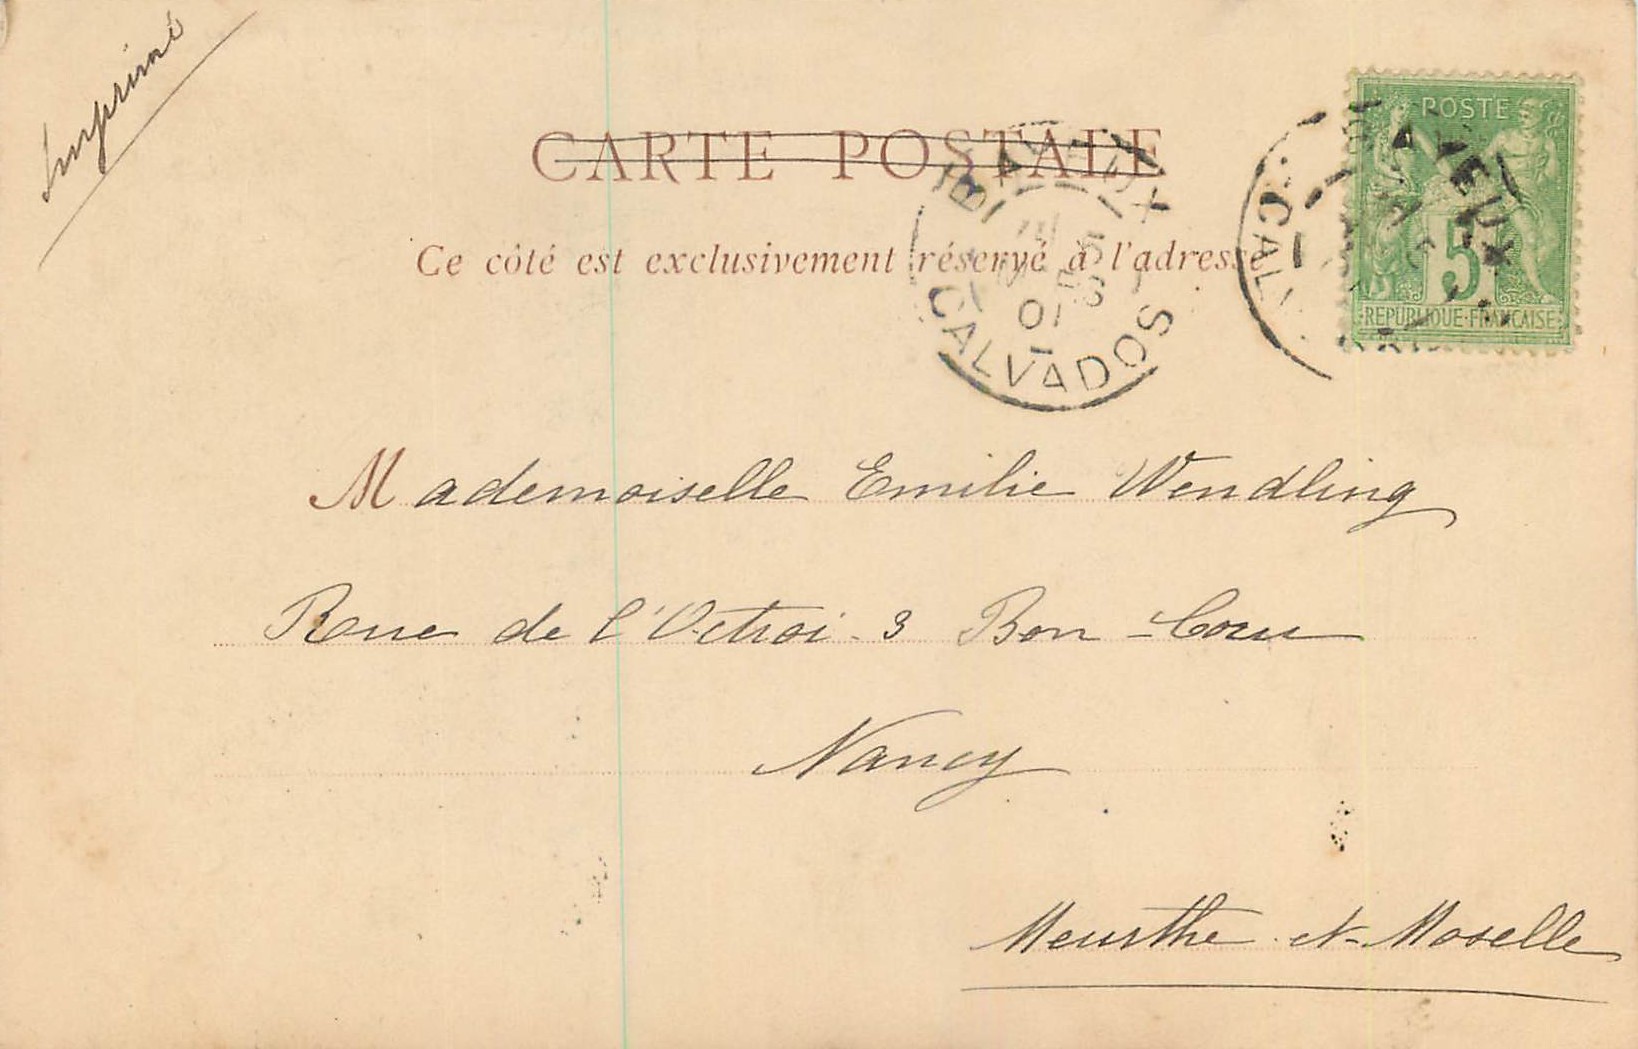 Imprimé
CARTE POSTALE
Ce côté est exclusivement réservé à l'adresse
BAYEUX
01
CALVADOS
POSTE
5
REPUBLIQUE·FRANÇAISE
Mademoiselle Emilie Wendling
Rue de l'Octroi 3 Bon-Cour
Nancy
Meurthe et Moselle